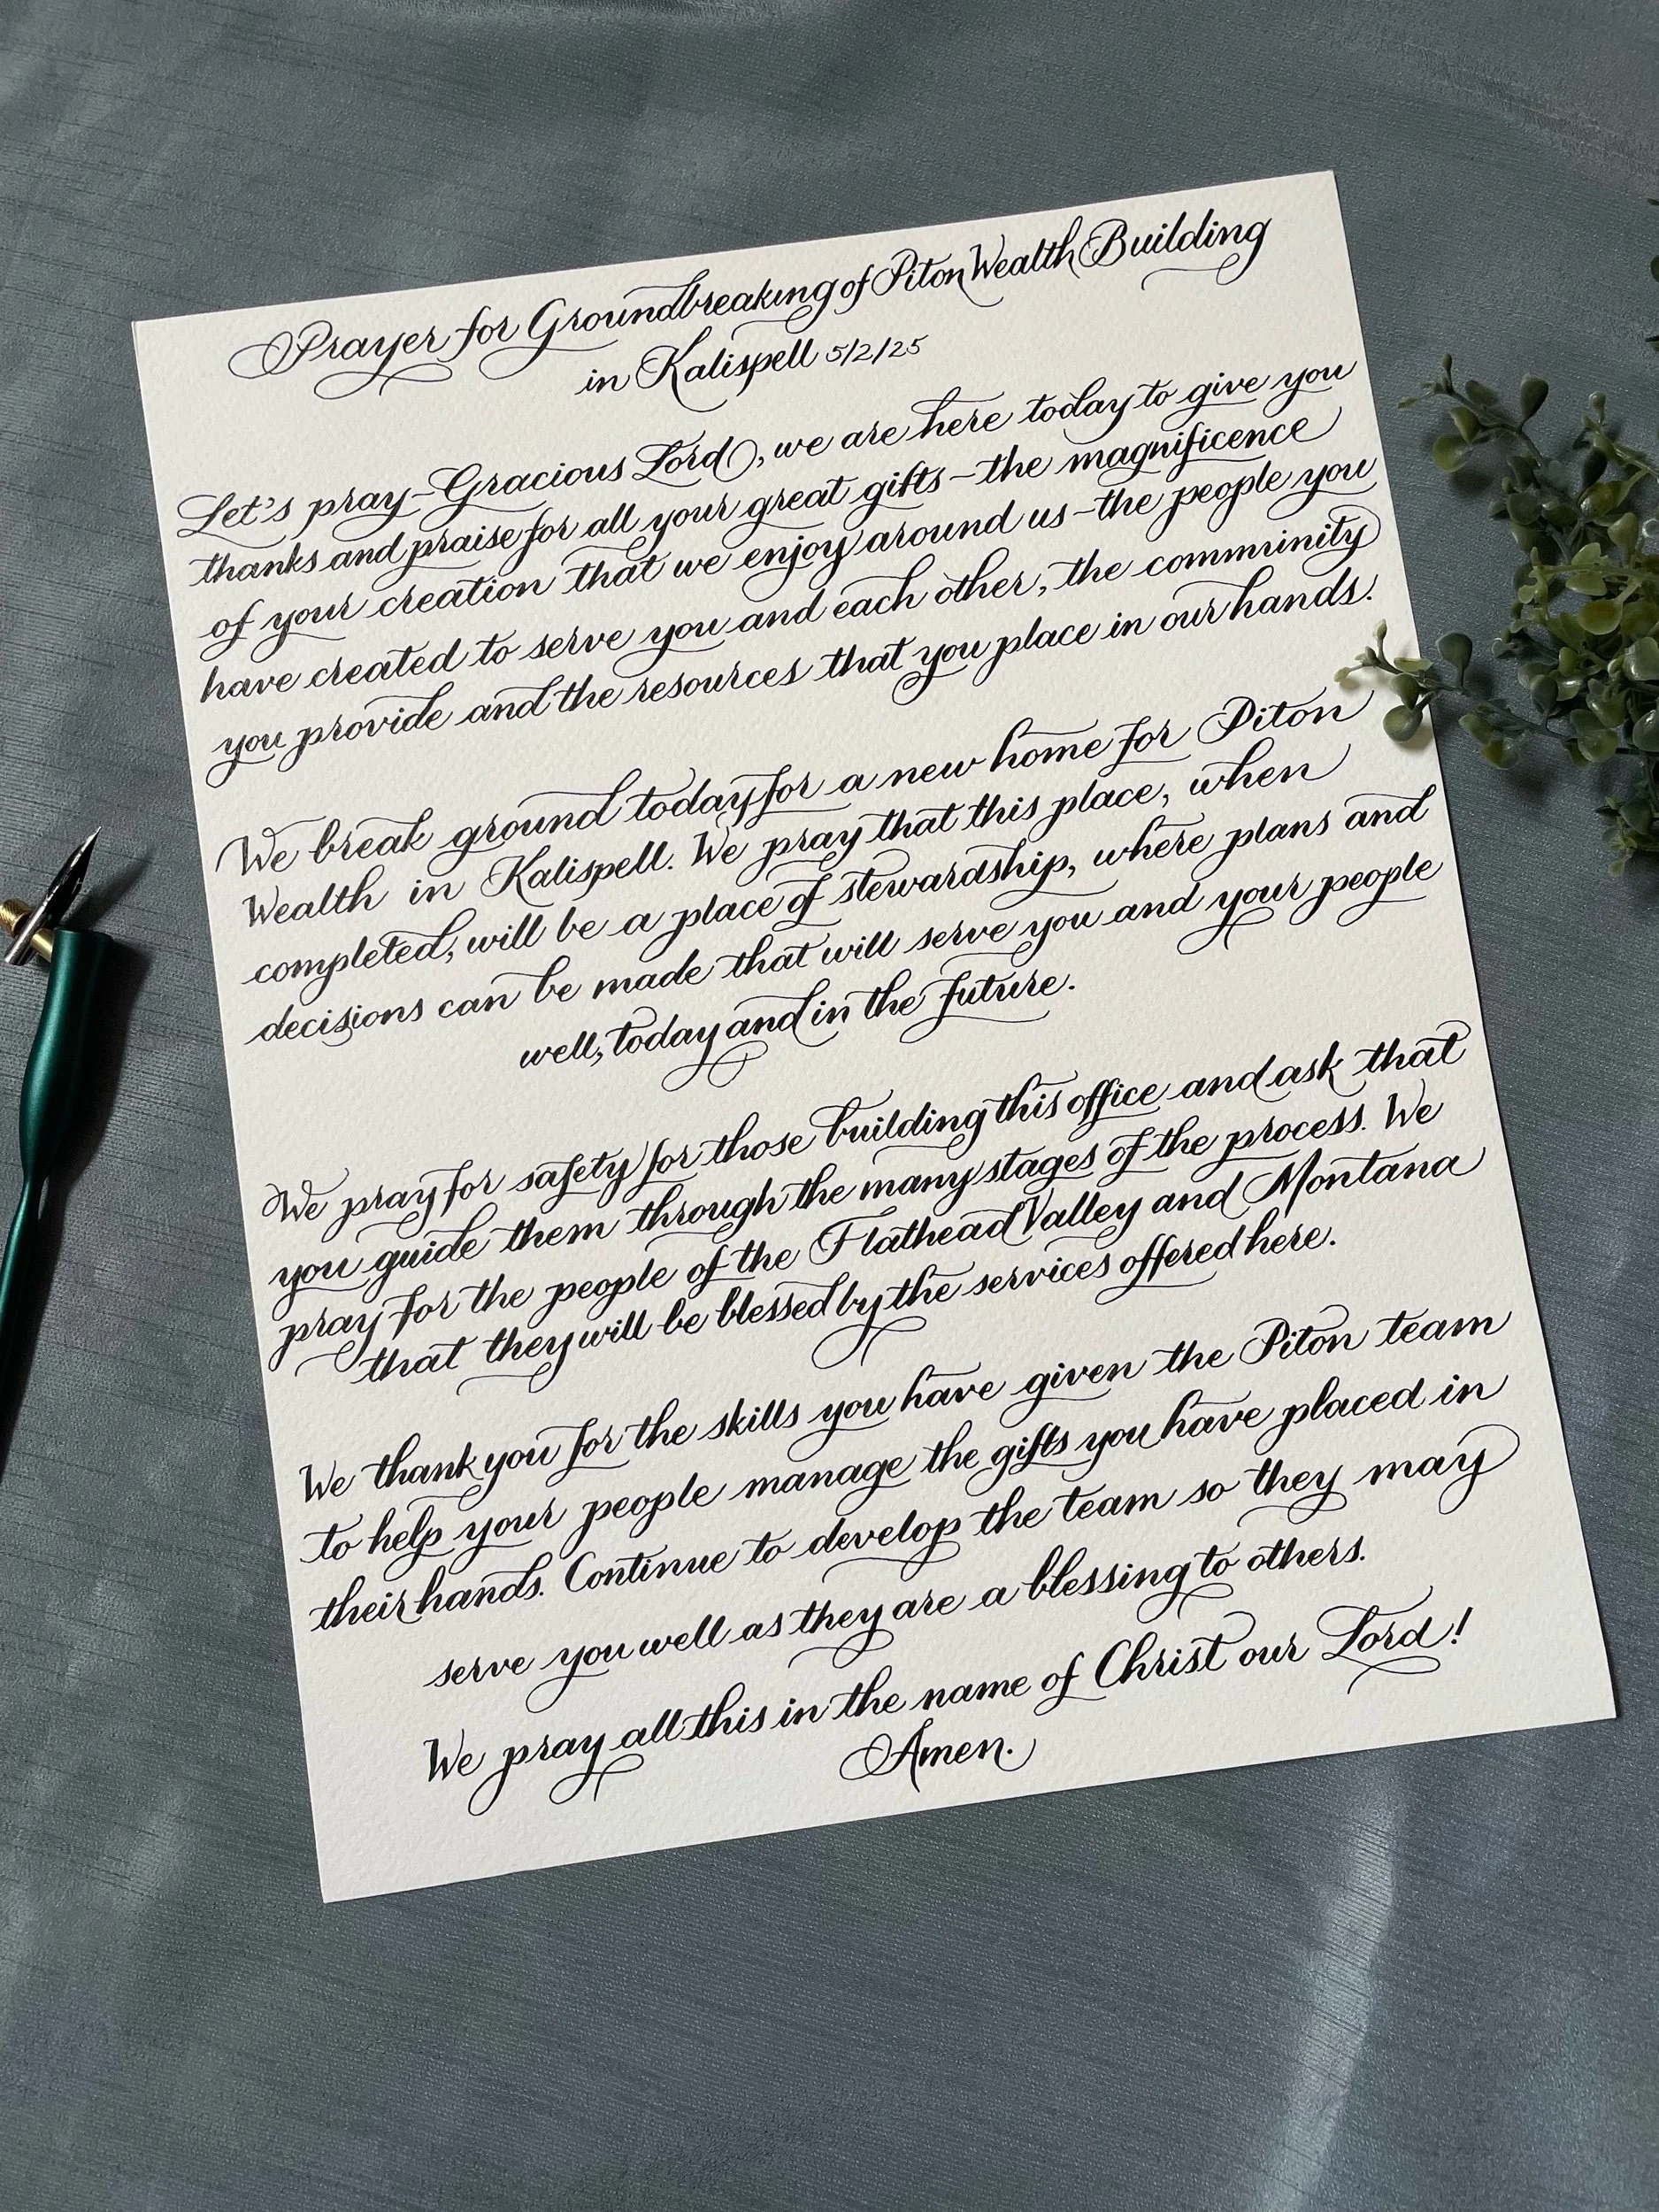 Prayer for Groundbreaking of Piton Wealth Building
in Kalispell 5/2/25
Let's pray–Gracious Lord, we are here today to give you
thanks and praise for all your great gifts–the magnificence
of your creation that we enjoy around us–the people you
have created to serve you and each other, the community
you provide and the resources that you place in our hands.
We break ground today for a new home for Piton
Wealth in Kalispell. We pray that this place, when
completed, will be a place of stewardship, where plans and
decisions can be made that will serve you and your people
well, today and in the future.
We pray for safety for those building this office and ask that
you guide them through the many stages of the process. We
pray for the people of the Flathead Valley and Montana
that they will be blessed by the services offered here.
We thank you for the skills you have given the Piton team
to help your people manage the gifts you have placed in
their hands. Continue to develop the team so they may
serve you well as they are a blessing to others.
We pray all this in the name of Christ our Lord!
Amen.